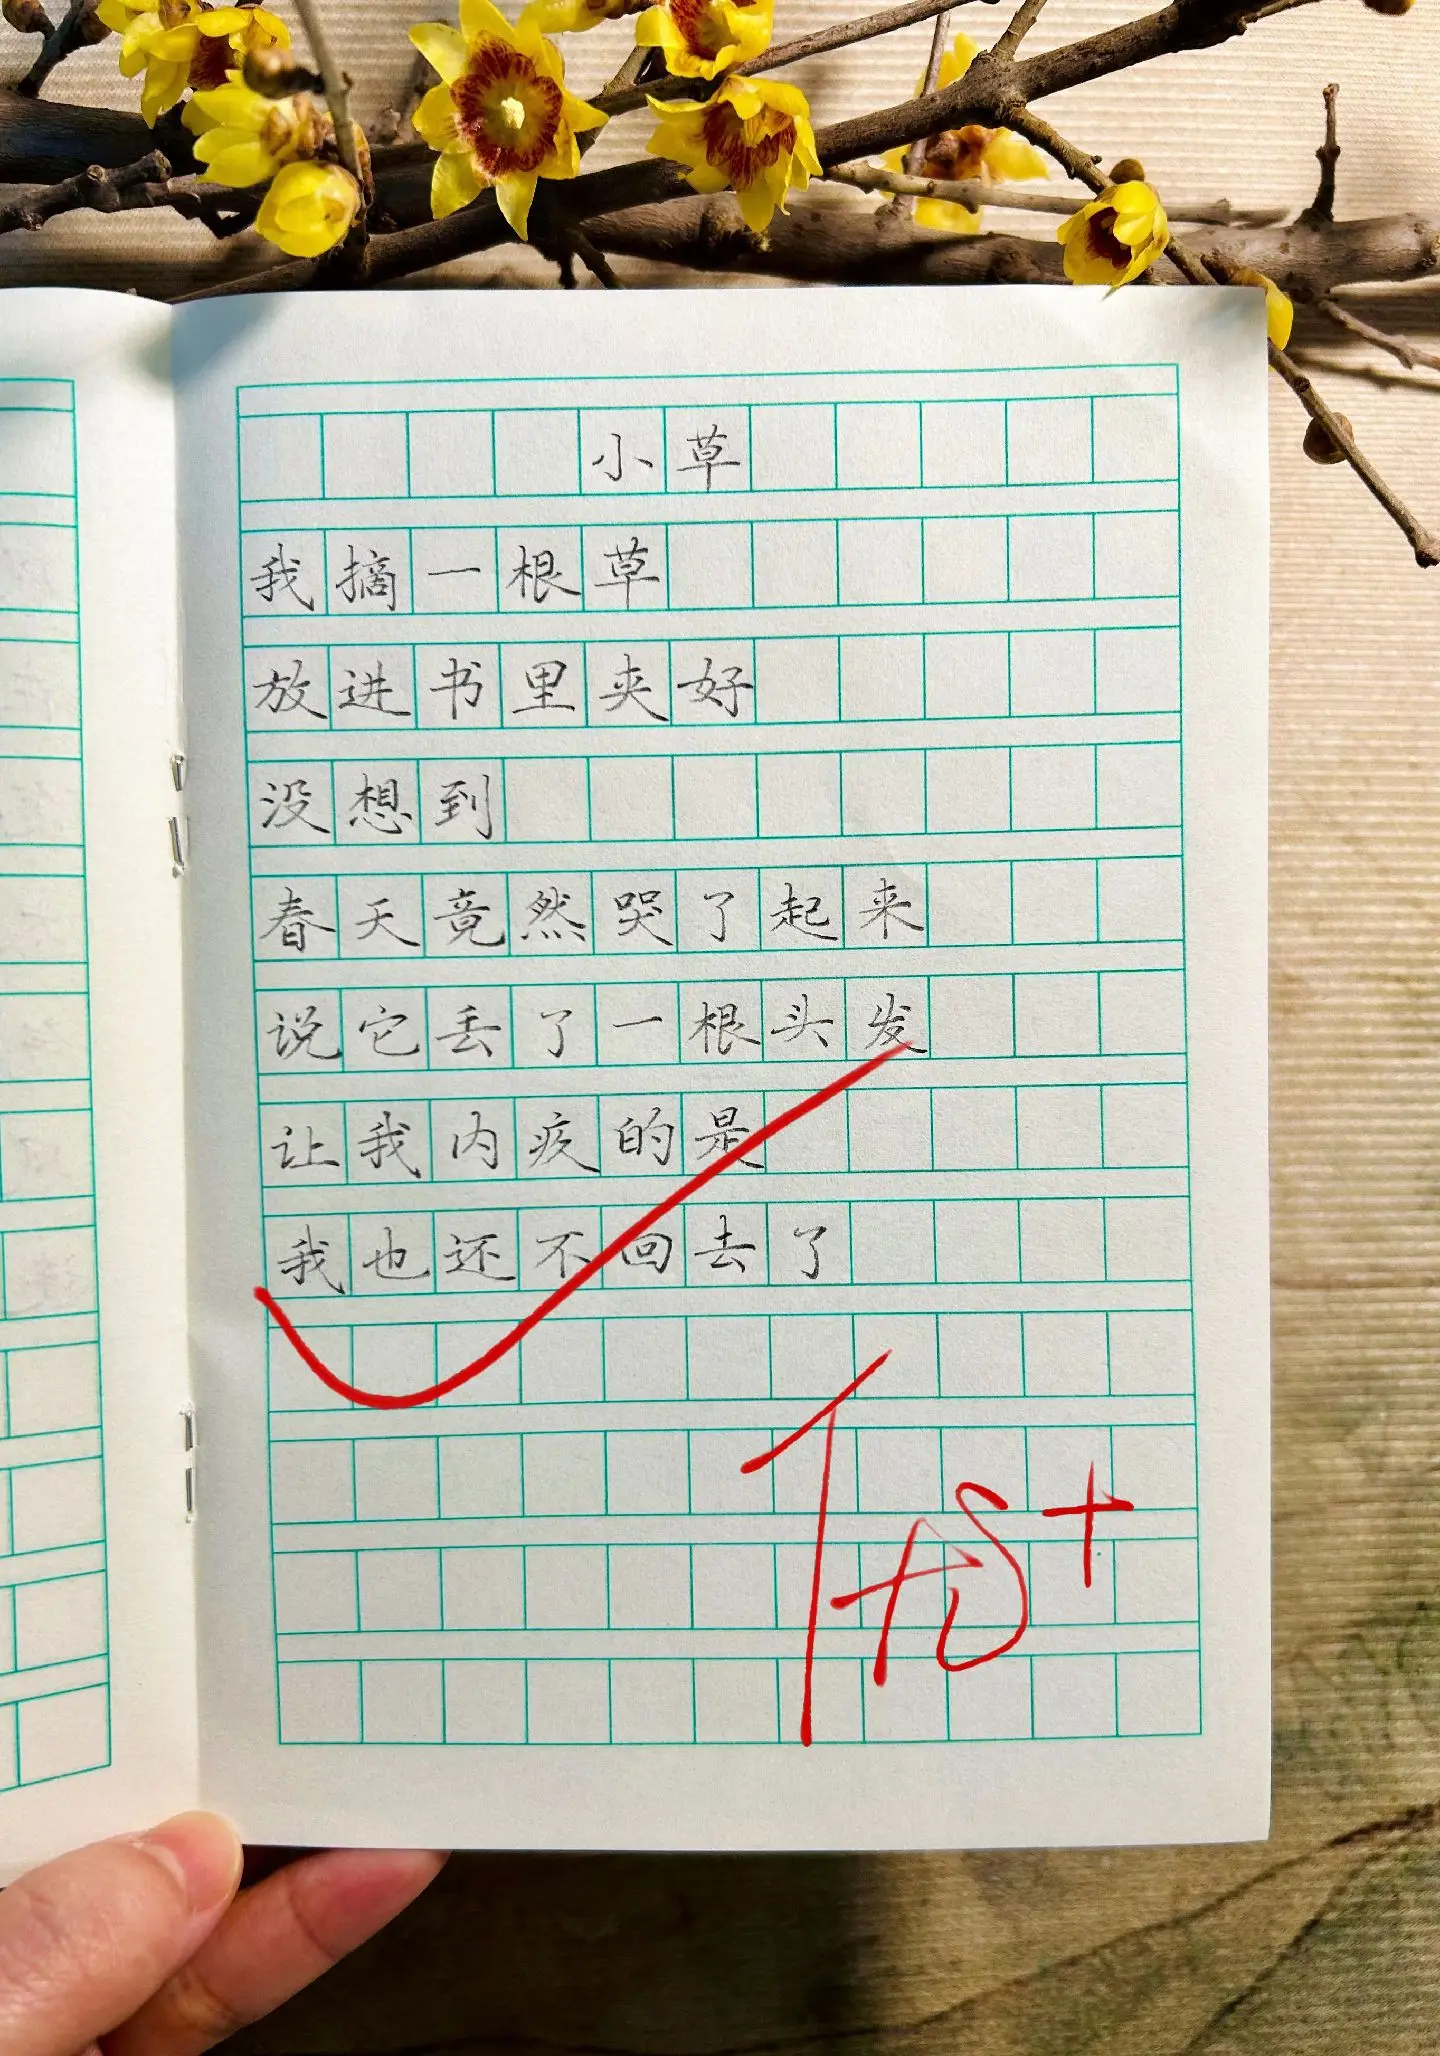 小草
我摘一根草
放进书里夹好
没想到
春天竟然哭了起来
说它丢了一根头发
让我内疚的是
我也还不回去了
优+